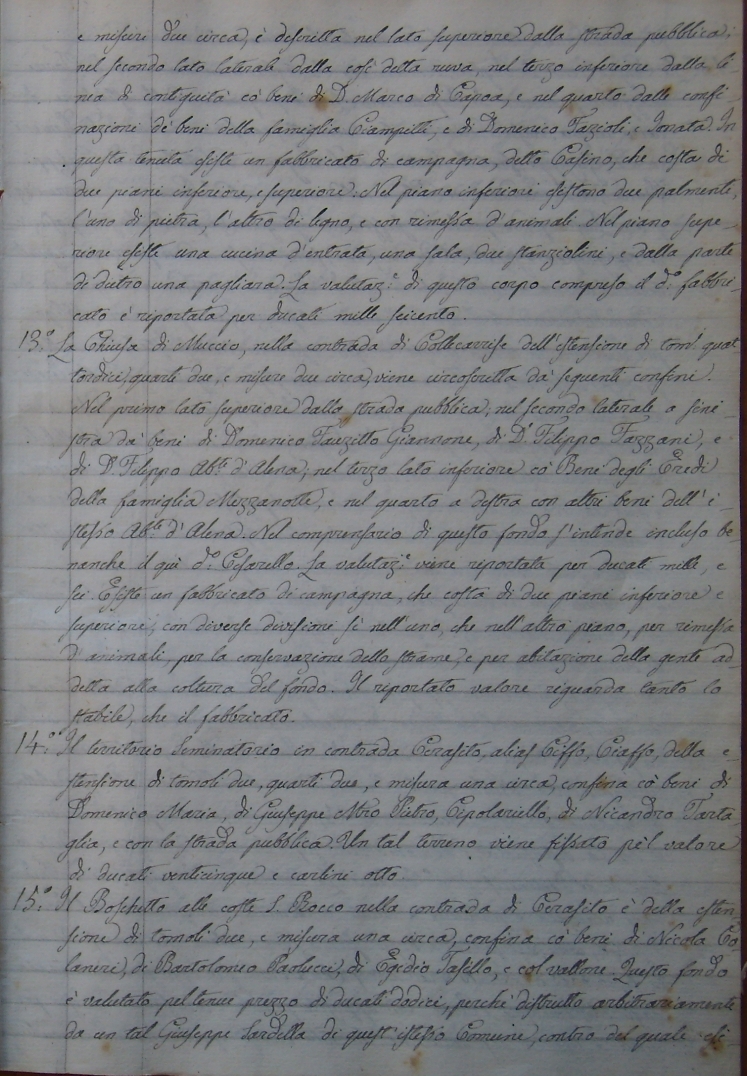 e misure due circa, è descritta nel lato superiore dalla strada pubblica;
nel secondo lato laterale dalla così detta ruva, nel terzo inferiore dalla li-
nea di contiguità co' beni di D. Marco di Capoa, e nel quarto dalle confi-
nazioni de' beni della famiglia Ciampitti, e di Domenico Tarcioli, e Ionata. In
questa tenuta esiste un fabbricato di campagna, detto Casino, che costa di
due piani inferiore, e superiore. Nel piano inferiore esistono due palmenti,
l'uno di pietra, l'altro di legno, e con rimessa d'animali. Nel piano supe-
riore esiste una cucina d'entrata, una sala, due stanziolini, e dalla parte
di dietro una pagliara. La valutaz.e di questo corpo compreso il d.o fabbri-
cato è riportata per ducati mille seicento.
13.o La Chiusa di Muccio, nella contrada di Collecarrise dell'estensione di tom.i quat-
tordici, quarti due, e misure due circa, viene circoscritta da' seguenti confini.
Nel primo lato superiore dalla strada pubblica, nel secondo laterale a sini-
stra da' beni di Domenico Tauzillo Giannone, di D.r Filippo Fazzani, e
di D. Filippo Ab.te d'Alena, nel terzo lato inferiore co' Beni degli Eredi
della famiglia Mezzanotte, e nel quarto a destra con altri beni dell'i-
stesso Ab.te d'Alena. Nel comprensorio di questo fondo s'intende incluso be-
nanche il quì d.o Cesarello. La valutaz.e viene reportata per ducati mille, e
sei. Esiste un fabbricato di campagna, che costa di due piani inferiore e
superiore, con diverse divisioni sì nell'uno, che nell'altro piano, per rimessa
d'animali, per la conservazione dello strame, e per abitazione della gente ad-
detta alla coltura del fondo. Il reportato valore riguarda tanto lo
stabile, che il fabbricato.
14.o Il territorio Seminatorio in contrada Cerasito, alias Ciffo, Ciaffo, della e-
stensione di tomoli due, quarti due, e misura una circa, confina co' beni di
Domenico Maria, di Giuseppe Pietro, Cipolariello, di Nicandro Tarta-
glia, e con la strada pubblica. Un tal terreno viene fissato pel valore
di ducati venticinque e carlini otto.
15.o Il Boschetto alle coste S. Rocco nella contrada di Cerasito è della esten-
sione di tomoli due, e misura una circa, confina co' beni di Nicola Co-
laneri, di Bartolomeo Paolucci, di Egidio Tasillo, e col vallone. Questo fondo
è valutato pel tenue prezzo di ducati dodici, perchè distrutto arbitrariamente
da un tal Giuseppe Sardella di quest'istesso Comune, contro del quale